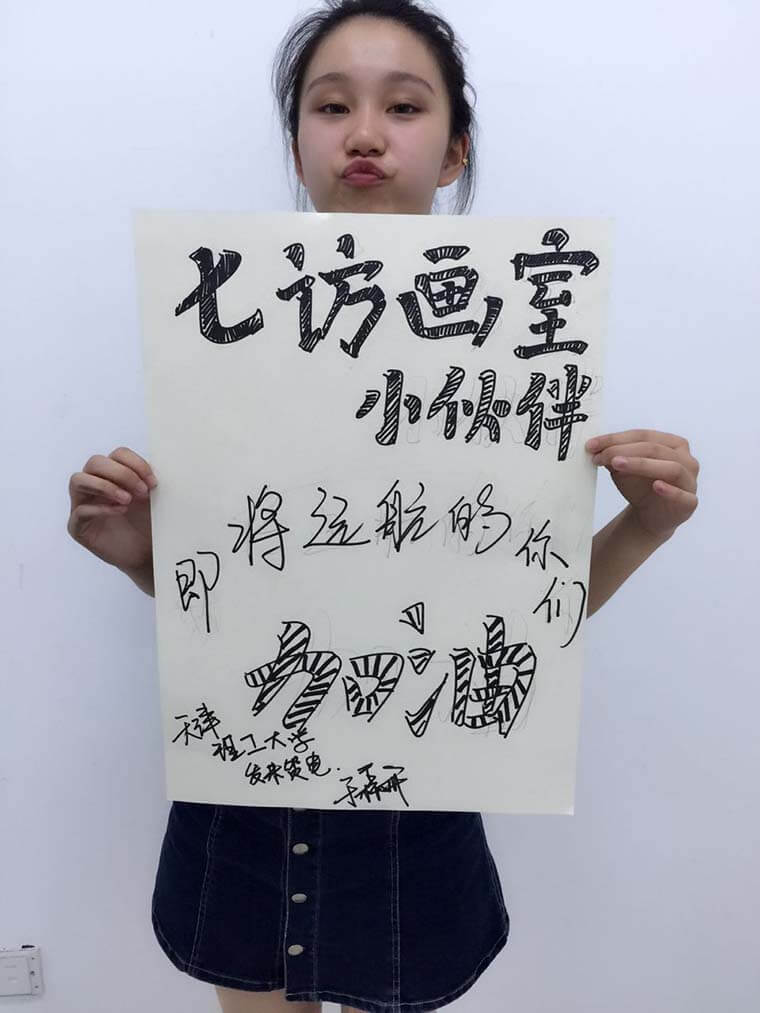 七访画室
小伙伴
即将远航的你们
加油
天津
理工大学
发来贺电.